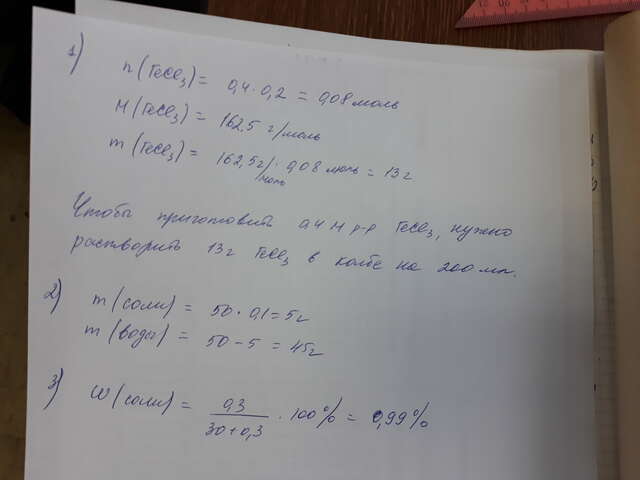 1) n(FeCl₃) = 0,4 · 0,2 = 0,08 моль
M(FeCl₃) = 162,5 г/моль
m(FeCl₃) = 162,5 г/моль · 0,08 моль = 13 г
Чтобы приготовить 0,4 М р-р FeCl₃, нужно
растворить 13 г FeCl₃ в колбе на 200 мл.
2) m(соли) = 50 · 0,1 = 5 г
m(воды) = 50 - 5 = 45 г
3) W(соли) = 0,3 / 30 + 0,3 · 100% = 0,99%